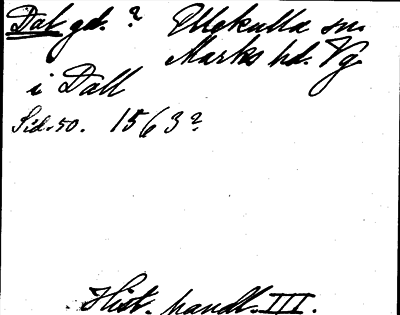 Dal gd. ? Ullekulla sn.
Marks hd. Vg.
i Dall
Sid. 50. 1563?
Hist. handl. III.